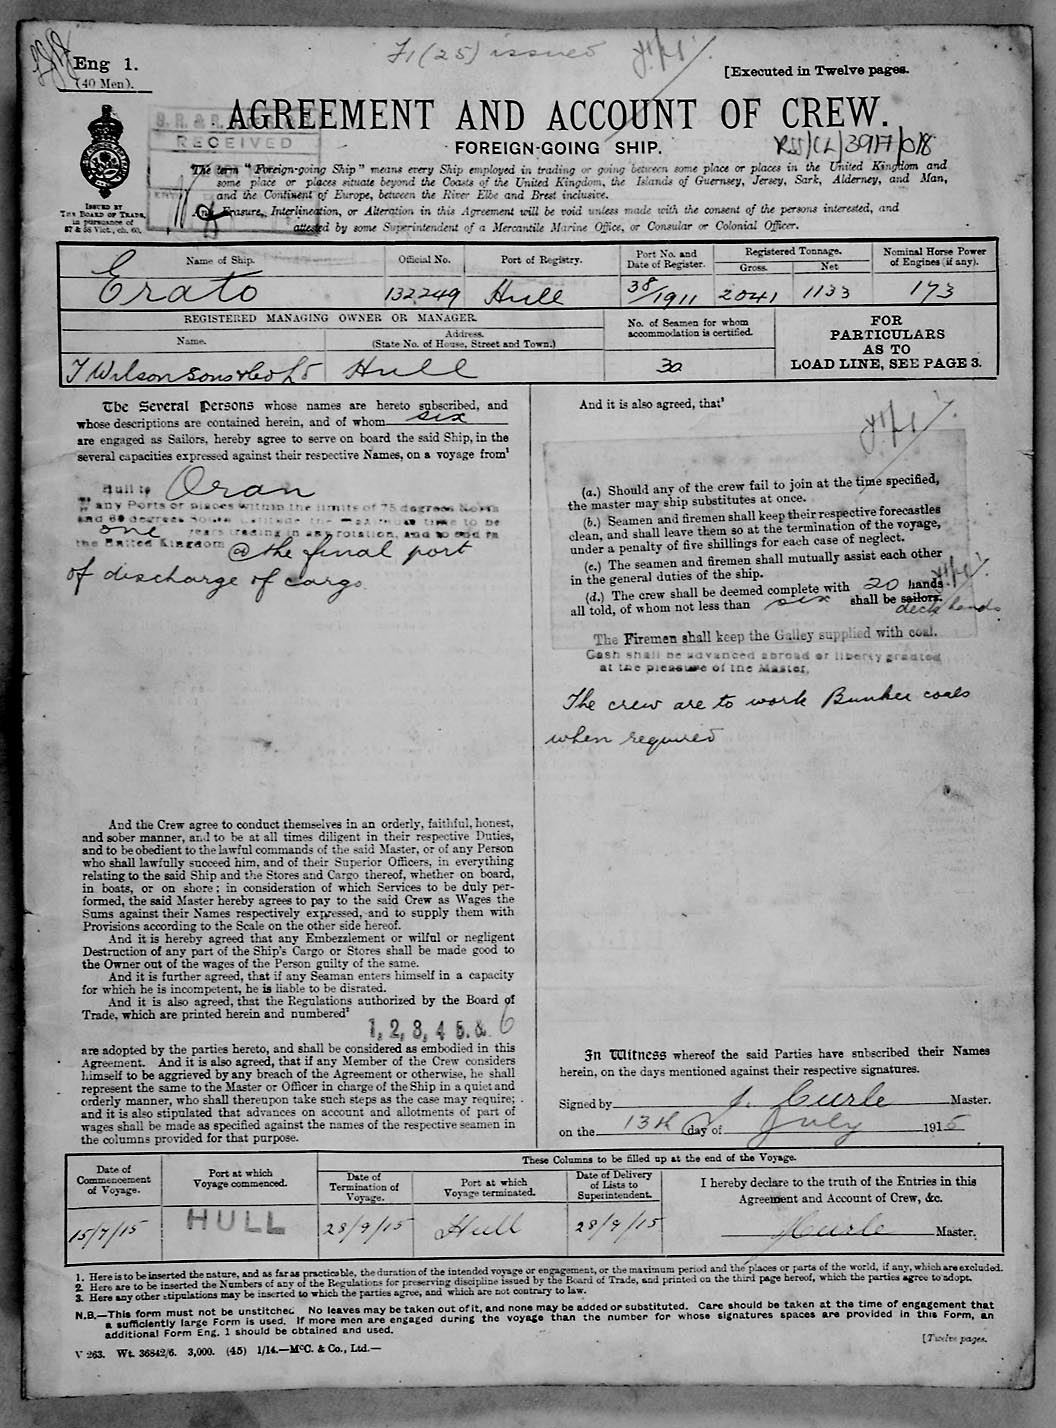 Eng 1.
(40 Men).
F1 (25) issued
[Executed in Twelve pages.
AGREEMENT AND ACCOUNT OF CREW.
FOREIGN-GOING SHIP.
RECEIVED
RSS/CL/3917/018
The term "Foreign-going Ship" means every Ship employed in trading or going between some place or places in the United Kingdom and
some place or places situate beyond the Coasts of the United Kingdom, the Islands of Guernsey, Jersey, Sark, Alderney, and Man,
and the Continent of Europe, between the River Elbe and Brest inclusive.
Any Erasure, Interlineation, or Alteration in this Agreement will be void unless made with the consent of the persons interested, and
attested by some Superintendent of a Mercantile Marine Office, or Consular or Colonial Officer.
ISSUED BY
THE BOARD OF TRADE,
in pursuance of
57 & 58 Vict., ch. 60.
Name of Ship.
Official No.
Port of Registry.
Port No. and
Date of Register.
Registered Tonnage.
Gross.
Net
Nominal Horse Power
of Engines (if any).
Erato
132249
Hull
38/1911
2041
1133
173
REGISTERED MANAGING OWNER OR MANAGER.
Name.
Address.
(State No. of House, Street and Town.)
No. of Seamen for whom
accommodation is certified.
FOR
PARTICULARS
AS TO
LOAD LINE, SEE PAGE 3.
T Wilson Sons & Co Ld
Hull
30
The Several Persons whose names are hereto subscribed, and
whose descriptions are contained herein, and of whom six
are engaged as Sailors, hereby agree to serve on board the said Ship, in the
several capacities expressed against their respective Names, on a voyage from¹
Hull to Oran
any Ports or places within the limits of 75 degrees North
and 60 degrees South Latitude the maximum time to be
one years trading in any rotation, and to end in
the United Kingdom @ the final port
of discharge of cargo
And the Crew agree to conduct themselves in an orderly, faithful, honest,
and sober manner, and to be at all times diligent in their respective Duties,
and to be obedient to the lawful commands of the said Master, or of any Person
who shall lawfully succeed him, and of their Superior Officers, in everything
relating to the said Ship and the Stores and Cargo thereof, whether on board,
in boats, or on shore; in consideration of which Services to be duly per-
formed, the said Master hereby agrees to pay to the said Crew as Wages the
Sums against their Names respectively expressed, and to supply them with
Provisions according to the Scale on the other side hereof.
And it is hereby agreed that any Embezzlement or wilful or negligent
Destruction of any part of the Ship's Cargo or Stores shall be made good to
the Owner out of the wages of the Person guilty of the same.
And it is further agreed, that if any Seaman enters himself in a capacity
for which he is incompetent, he is liable to be disrated.
And it is also agreed, that the Regulations authorized by the Board of
Trade, which are printed herein and numbered²
1, 2, 3, 4 5. & 6
are adopted by the parties hereto, and shall be considered as embodied in this
Agreement. And it is also agreed, that if any Member of the Crew considers
himself to be aggrieved by any breach of the Agreement or otherwise, he shall
represent the same to the Master or Officer in charge of the Ship in a quiet and
orderly manner, who shall thereupon take such steps as the case may require;
and it is also stipulated that advances on account and allotments of part of
wages shall be made as specified against the names of the respective seamen in
the columns provided for that purpose.
And it is also agreed, that³
(a.) Should any of the crew fail to join at the time specified,
the master may ship substitutes at once.
(b.) Seamen and firemen shall keep their respective forecastles
clean, and shall leave them so at the termination of the voyage,
under a penalty of five shillings for each case of neglect.
(c.) The seamen and firemen shall mutually assist each other
in the general duties of the ship.
(d.) The crew shall be deemed complete with 20 hands
all told, of whom not less than six shall be sailors.
deck hands
The Firemen shall keep the Galley supplied with coal.
Cash shall be advanced abroad or liberty granted
at the pleasure of the Master.
The crew are to work Bunker coals
when required
In Witness whereof the said Parties have subscribed their Names
herein, on the days mentioned against their respective signatures.
Signed by J. Curle Master.
on the 13th day of July 1915
Date of
Commencement
of Voyage.
Port at which
Voyage commenced.
These Columns to be filled up at the end of the Voyage.
Date of
Termination of
Voyage.
Port at which
Voyage terminated.
Date of Delivery
of Lists to
Superintendent.
I hereby declare to the truth of the Entries in this
Agreement and Account of Crew, &c.
15/7/15
HULL
28/9/15
Hull
28/9/15
J Curle Master.
1. Here is to be inserted the nature, and as far as practicable, the duration of the intended voyage or engagement, or the maximum period and the places or parts of the world, if any, which are excluded.
2. Here are to be inserted the Numbers of any of the Regulations for preserving discipline issued by the Board of Trade, and printed on the third page hereof, which the parties agree to adopt.
3. Here any other stipulations may be inserted to which the parties agree, and which are not contrary to law.
N.B.—This form must not be unstitched. No leaves may be taken out of it, and none may be added or substituted. Care should be taken at the time of engagement that
a sufficiently large Form is used. If more men are engaged during the voyage than the number for whose signatures spaces are provided in this Form, an
additional Form Eng. 1 should be obtained and used.
[Twelve pages.
V 263. Wt. 36842/6. 3,000. (45) 1/14.—McC. & Co., Ltd.—